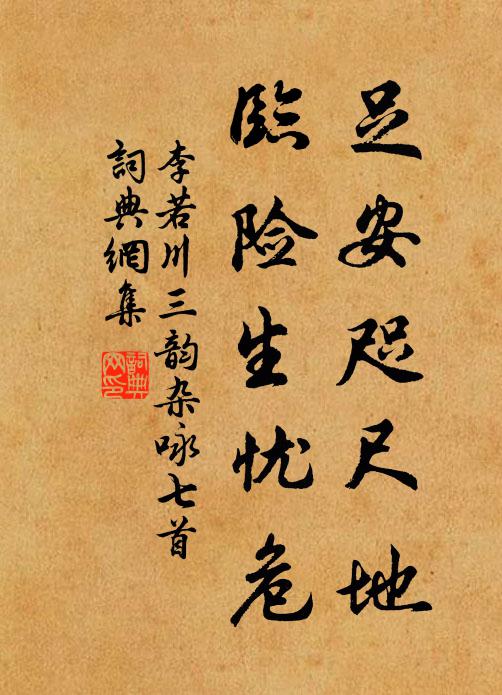 足安咫尺地
臨险生忧危
李若川三韵杂咏七首
詞典網集
詞典網印